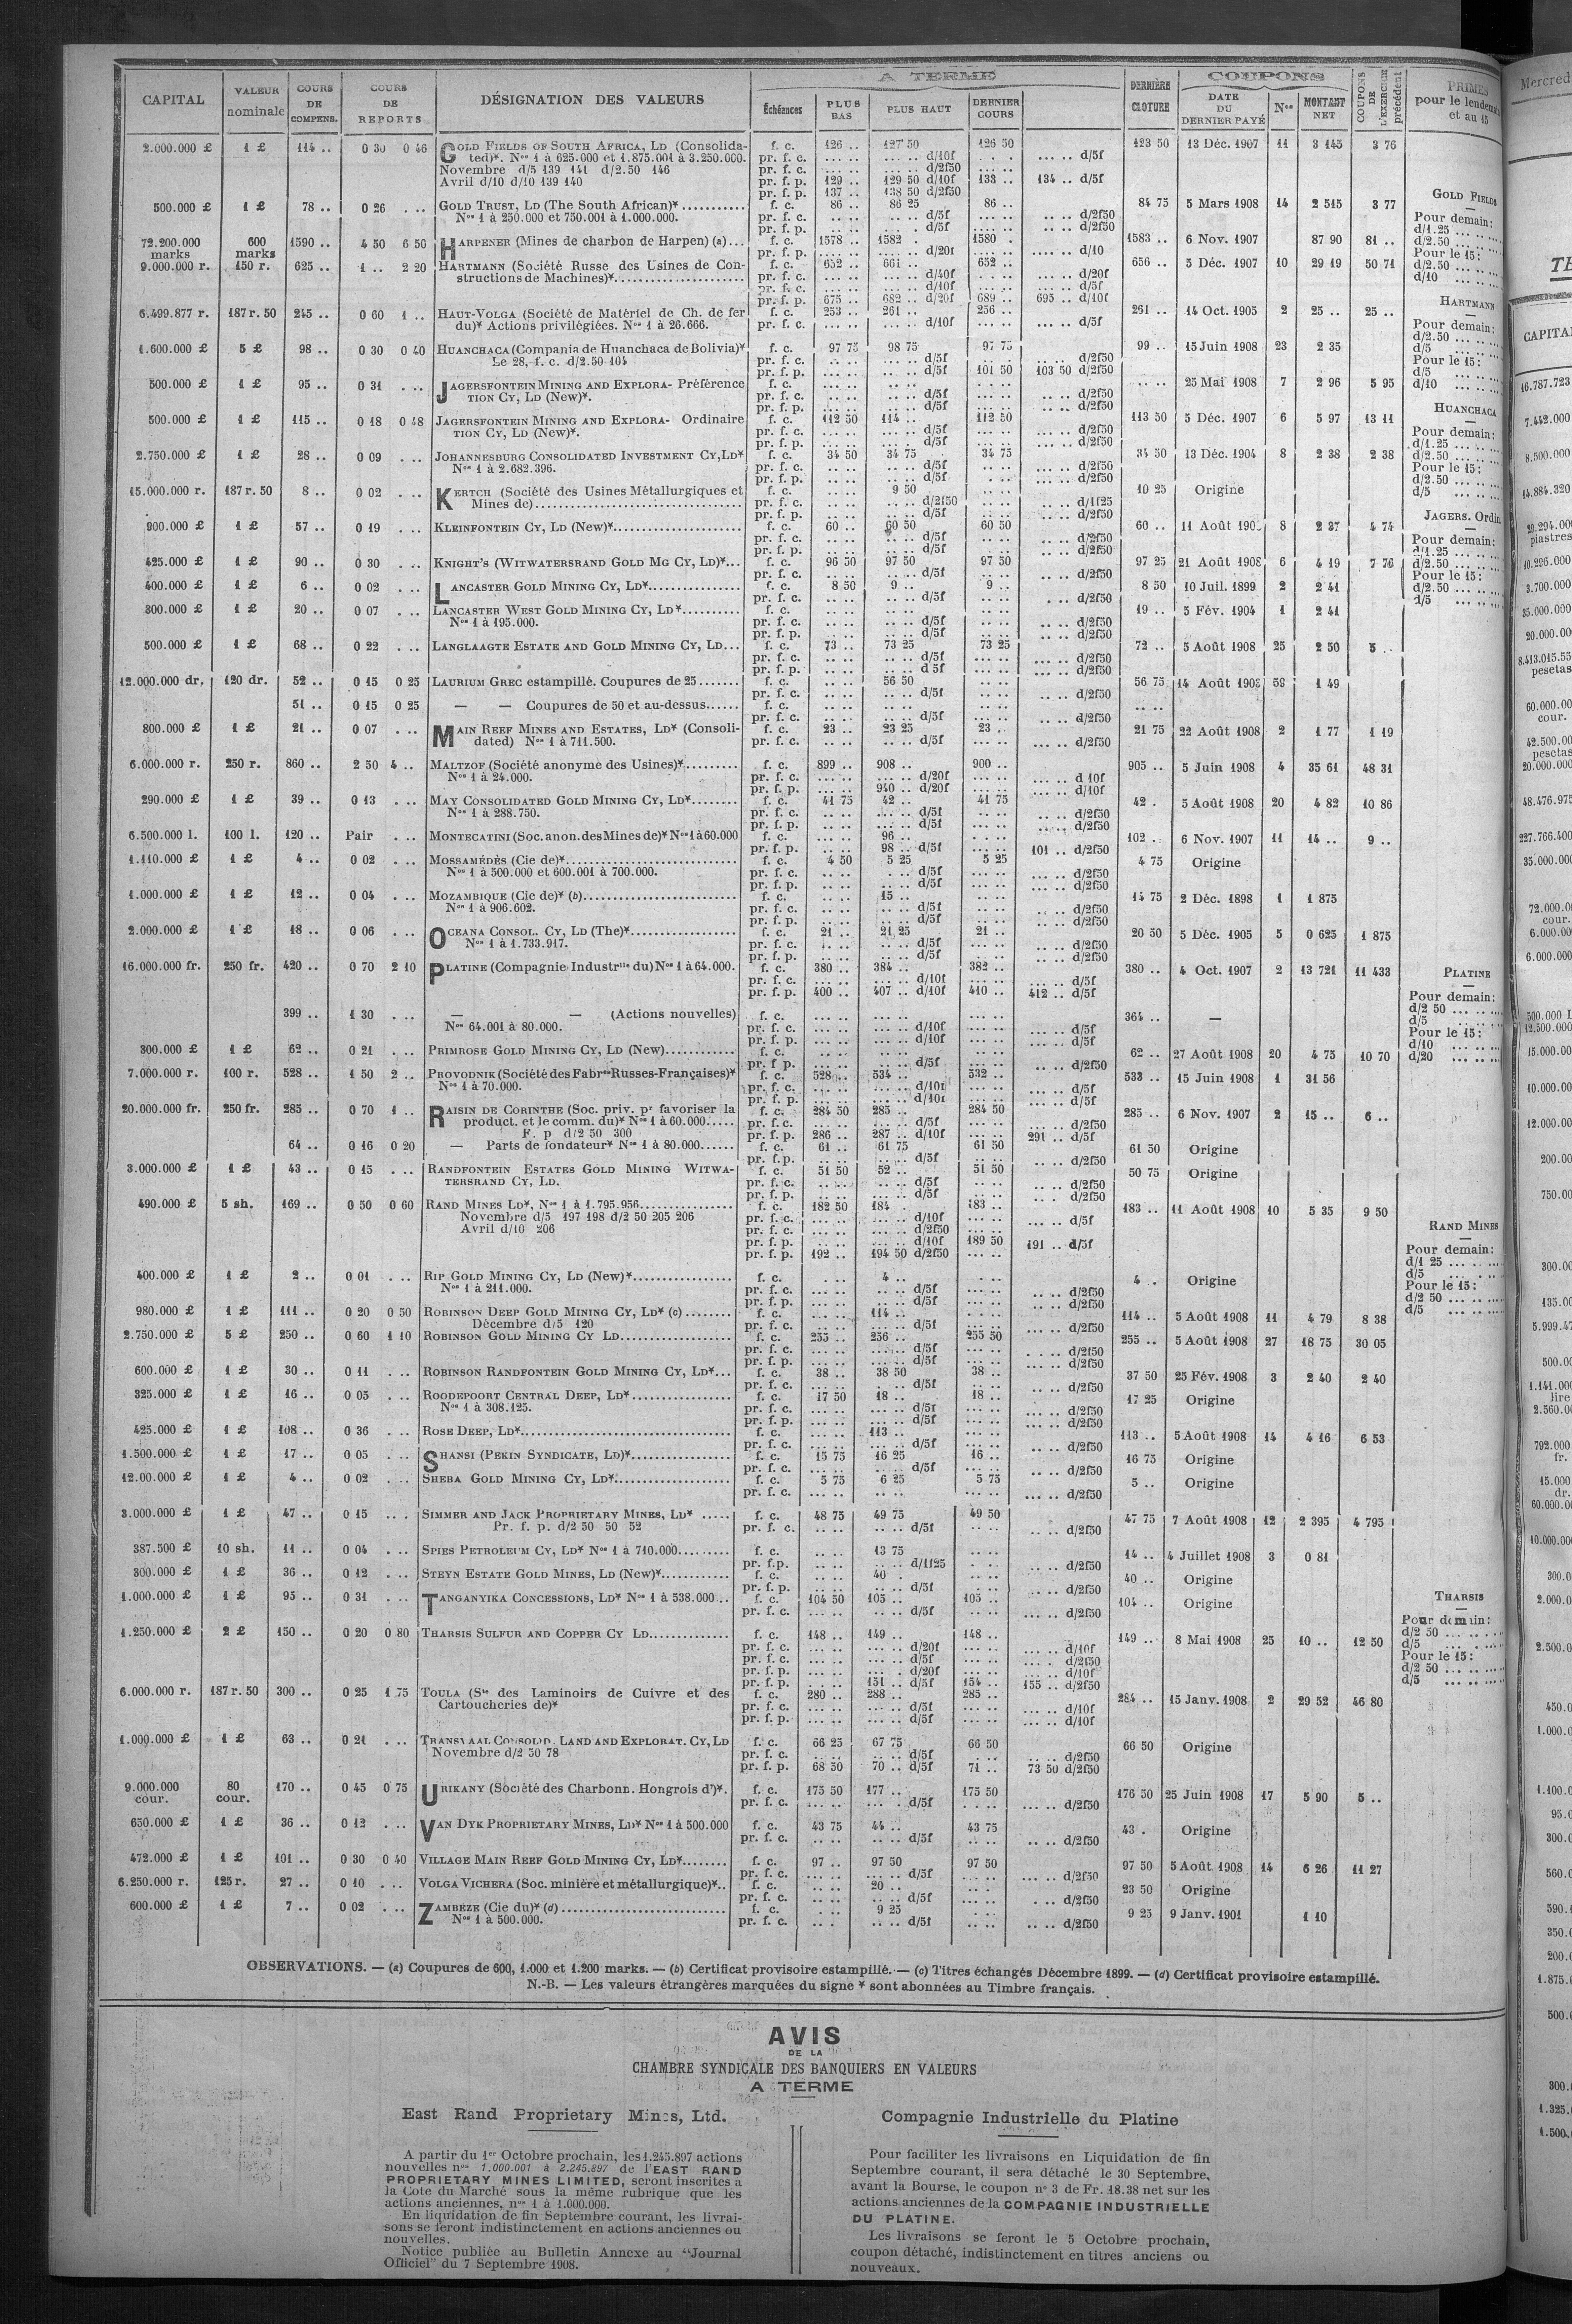 CAPITAL | VALEUR nominale | COURS DE COMPENS. | COURS DE REPORTS | DÉSIGNATION DES VALEURS | A TERME | Échéances | PLUS BAS | PLUS HAUT | DERNIER COURS | DERNIÈRE CLOTURE | COUPONS | DATE DU DERNIER PAYÉ | Nos | MONTANT NET | COUPONS DE L'EXERCICE précédent | PRIMES pour le lendemain et au 15
2.000.000 £ 1 £ 114 .. 0 30 0 46 GOLD FIELDS OF SOUTH AFRICA, LD (Consolida- f. c. 126 .. 127 50 126 50 123 50 13 Déc. 1907 11 3 145 3 76
ted)*. Nos 1 à 625.000 et 1.875.001 à 3.250.000. pr. f. c. d/10f d/5f
Novembre d/5 139 141 d/2.50 146 pr. f. c. d/2f50
Avril d/10 d/10 139 140 pr. f. p. 129 .. 129 50 d/10f 133 .. 134 .. d/5f
pr. f. p. 137 .. 138 50 d/2f50
500.000 £ 1 £ 78 .. 0 26 GOLD TRUST, LD (The South African)* f. c. 86 .. 86 25 86 .. 84 75 5 Mars 1908 14 2 515 3 77
Nos 1 à 250.000 et 750.001 à 1.000.000. pr. f. c. d/5f d/2f50
pr. f. p. d/5f d/2f50
72.200.000 marks 600 marks 1590 .. 4 50 6 50 HARPENER (Mines de charbon de Harpen) (a)... f. c. 1578 .. 1582 . 1580 . 1583 .. 6 Nov. 1907 87 90 81 ..
pr. f. p. d/20f d/10
9.000.000 r. 150 r. 625 .. 1 .. 2 20 HARTMANN (Société Russe des Usines de Con- f. c. 652 .. 661 .. 652 .. 656 .. 5 Déc. 1907 10 29 19 50 71
structions de Machines)* pr. f. c. d/40f d/20f
pr. f. c. d/10f d/5f
pr. f. p. 675 .. 682 .. d/20f 689 .. 695 .. d/10f
6.499.877 r. 187 r. 50 245 .. 0 60 1 .. HAUT-VOLGA (Société de Matériel de Ch. de fer f. c. 253 .. 261 .. 256 .. 261 .. 14 Oct. 1905 2 25 .. 25 ..
du)* Actions privilégiées. Nos 1 à 26.666. pr. f. c. d/10f d/5f
1.600.000 £ 5 £ 98 .. 0 30 0 40 HUANCHACA (Compania de Huanchaca de Bolivia)* f. c. 97 75 98 75 97 75 99 .. 15 Juin 1908 23 2 35
Le 28, f. c. d/2.50 104 pr. f. c. d/5f d/2f50
pr. f. p. d/5f 101 50 103 50 d/2f50
500.000 £ 1 £ 95 .. 0 31 JAGERSFONTEIN MINING AND EXPLORA- Préférence f. c. 25 Mai 1908 7 2 96 5 95
TION CY, LD (New)*. pr. f. c. d/5f d/2f50
pr. f. p. d/5f d/2f50
500.000 £ 1 £ 115 .. 0 18 0 48 JAGERSFONTEIN MINING AND EXPLORA- Ordinaire f. c. 112 50 114 .. 112 50 113 50 5 Déc. 1907 6 5 97 13 11
TION CY, LD (New)*. pr. f. c. d/5f d/2f50
pr. f. p. d/5f d/2f50
2.750.000 £ 1 £ 28 .. 0 09 JOHANNESBURG CONSOLIDATED INVESTMENT CY, LD* f. c. 34 50 34 75 34 75 34 50 13 Déc. 1904 8 2 38 2 38
Nos 1 à 2.682.396. pr. f. c. d/5f d/2f50
pr. f. p. d/5f d/2f50
15.000.000 r. 187 r. 50 8 .. 0 02 KERTCH (Société des Usines Métallurgiques et f. c. 9 50 10 25 Origine
Mines de) pr. f. c. d/2f50 d/1f25
pr. f. p. d/5f d/2f50
900.000 £ 1 £ 57 .. 0 19 KLEINFONTEIN CY, LD (New)* f. c. 60 .. 60 50 60 50 60 .. 11 Août 8 2 37 4 74
pr. f. c. d/5f d/2f50
pr. f. p. d/5f d/2f50
425.000 £ 1 £ 90 .. 0 30 KNIGHT'S (WITWATERSRAND GOLD MG CY, LD)*... f. c. 96 50 97 50 97 50 97 25 21 Août 1908 6 4 19 7 76
pr. f. c. d/5f d/2f50
400.000 £ 1 £ 6 .. 0 02 LANCASTER GOLD MINING CY, LD* f. c. 8 50 9 .. 9 .. 8 50 10 Juil. 1899 2 2 41
pr. f. c. d/5f d/2f50
300.000 £ 1 £ 20 .. 0 07 LANCASTER WEST GOLD MINING CY, LD* f. c. 19 .. 5 Fév. 1904 1 2 41
Nos 1 à 195.000. pr. f. c. d/5f d/2f50
pr. f. p. d/5f d/2f50
500.000 £ 1 £ 68 .. 0 22 LANGLAAGTE ESTATE AND GOLD MINING CY, LD... f. c. 73 .. 73 25 73 25 72 .. 5 Août 1908 25 2 50 5 ..
pr. f. c. d/5f d/2f50
pr. f. p. d 5f d/2f50
12.000.000 dr. 120 dr. 52 .. 0 15 0 25 LAURIUM GREC estampillé. Coupures de 25 f. c. 56 50 56 75 14 Août 1908 58 1 49
pr. f. c. d/5f d/2f50
51 .. 0 15 0 25 — — Coupures de 50 et au-dessus f. c.
pr. f. c. d/5f d/2f50
800.000 £ 1 £ 21 .. 0 07 MAIN REEF MINES AND ESTATES, LD* (Consoli- f. c. 23 .. 23 25 23 .. 21 75 22 Août 1908 2 1 77 1 19
dated) Nos 1 à 711.500. pr. f. c. d/5f d/2f50
6.000.000 r. 250 r. 860 .. 2 50 4 .. MALTZOF (Société anonyme des Usines)* f. c. 899 .. 908 .. 900 .. 905 .. 5 Juin 1908 4 35 61 48 31
Nos 1 à 24.000. pr. f. c. d/20f d 10f
pr. f. p. 940 .. d/20f d/10f
290.000 £ 1 £ 39 .. 0 13 MAY CONSOLIDATED GOLD MINING CY, LD* f. c. 41 75 42 .. 41 75 42 . 5 Août 1908 20 4 82 10 86
Nos 1 à 288.750. pr. f. c. d/5f d/2f50
pr. f. p. d/5f d/2f50
6.500.000 l. 100 l. 120 .. Pair MONTECATINI (Soc. anon. des Mines de)* Nos 1 à 60.000 f. c. 96 .. 102 . 6 Nov. 1907 11 14 .. 9 ..
pr. f. p. 98 .. d/5f 101 .. d/2f50
1.110.000 £ 1 £ 4 .. 0 02 MOSSAMÉDÈS (Cie de)* f. c. 4 50 5 25 5 25 4 75 Origine
Nos 1 à 500.000 et 600.001 à 700.000. pr. f. c. d/5f d/2f50
pr. f. p. d/5f d/2f50
1.000.000 £ 1 £ 12 .. 0 04 MOZAMBIQUE (Cie de)* (b) f. c. 15 .. 14 75 2 Déc. 1898 1 1 875
Nos 1 à 906.602. pr. f. c. d/5f d/2f50
pr. f. p. d/5f d/2f50
2.000.000 £ 1 £ 18 .. 0 06 OCEANA CONSOL. CY, LD (The)* f. c. 21 .. 21 25 21 .. 20 50 5 Déc. 1905 5 0 625 1 875
Nos 1 à 1.733.917. pr. f. c. d/5f d/2f50
pr. f. p. d/5f d/2f50
16.000.000 fr. 250 fr. 420 .. 0 70 2 10 PLATINE (Compagnie Industrlle du) Nos 1 à 64.000. f. c. 380 .. 384 .. 382 .. 380 .. 4 Oct. 1907 2 13 721 11 433
pr. f. c. d/10f d/5f
pr. f. p. 400 .. 407 .. d/10f 410 .. 412 .. d/5f
399 .. 1 30 — — (Actions nouvelles) f. c. 364 .. —
Nos 64.001 à 80.000. pr. f. c. d/10f d/5f
pr. f. p. d/10f d/5f
300.000 £ 1 £ 62 .. 0 21 PRIMROSE GOLD MINING CY, LD (New) f. c. 62 .. 27 Août 1908 20 4 75 10 70
pr f p. d/5f d/2f50
7.000.000 r. 100 r. 528 .. 1 50 2 .. PROVODNIK (Société des Fabres Russes-Françaises)* f. c. 528 .. 534 .. 532 .. 533 .. 15 Juin 1908 1 31 56
Nos 1 à 70.000. pr. f. c. d/10f d/5f
pr. f. p. d/10f d/5f
20.000.000 fr. 250 fr. 285 .. 0 70 1 .. RAISIN DE CORINTHE (Soc. priv. pr favoriser la f. c. 284 50 285 .. 284 50 285 .. 6 Nov. 1907 2 15 .. 6 ..
product. et le comm. du)* Nos 1 à 60.000 pr. f. c. d/5f d/2f50
F. p d/2 50 300 pr. f. p. 286 .. 287 .. d/10f 291 .. d/5f
64 .. 0 16 0 20 — Parts de fondateur* Nos 1 à 80.000 f. c. 61 .. 61 75 61 50 61 50 Origine
pr. f. p. d/5f d/2f50
3.000.000 £ 1 £ 43 .. 0 15 RANDFONTEIN ESTATES GOLD MINING WITWA- f. c. 51 50 52 .. 51 50 50 75 Origine
TERSRAND CY, LD. pr. f. c. d/5f d/2f50
pr. f. p. d/5f d/2f50
490.000 £ 5 sh. 169 .. 0 50 0 60 RAND MINES LD*, Nos 1 à 1.795.956 f. c. 182 50 184 . 183 .. 183 .. 11 Août 1908 10 5 35 9 50
Novembre d/5 197 198 d/2 50 205 206 pr. f. c. d/10f d/5f
Avril d/10 206 pr. f. c. d/2f50
pr. f. p. d/10f 189 50 191 .. d/5f
pr. f. p. 192 .. 194 50 d/2f50
400.000 £ 1 £ 2 .. 0 01 RIP GOLD MINING CY, LD (New)* f. c. 4 .. 4 . Origine
Nos 1 à 211.000. pr. f. c. d/5f d/2f50
pr. f. p. d/5f d/2f50
980.000 £ 1 £ 111 .. 0 20 0 50 ROBINSON DEEP GOLD MINING CY, LD* (c) f. c. 114 .. 114 .. 5 Août 1908 11 4 79 8 38
Décembre d/5 120 pr. f. c. d/5f d/2f50
2.750.000 £ 5 £ 250 .. 0 60 1 10 ROBINSON GOLD MINING CY LD f. c. 255 .. 256 .. 255 50 255 .. 5 Août 1908 27 18 75 30 05
pr. f. c. d/5f d/2f50
pr. f. p. d/5f d/2f50
600.000 £ 1 £ 30 .. 0 11 ROBINSON RANDFONTEIN GOLD MINING CY, LD*... f. c. 38 .. 38 50 38 .. 37 50 25 Fév. 1908 3 2 40 2 40
pr. f. c. d/5f d/2f50
325.000 £ 1 £ 16 .. 0 05 ROODEPOORT CENTRAL DEEP, LD* f. c. 17 50 18 .. 18 .. 17 25 Origine
Nos 1 à 308.125. pr. f. c. d/5f d/2f50
pr. f. p. d/5f d/2f50
425.000 £ 1 £ 108 .. 0 36 ROSE DEEP, LD* f. c. 113 .. 113 .. 5 Août 1908 14 4 16 6 53
pr. f. c. d/5f d/2f50
1.500.000 £ 1 £ 17 .. 0 05 SHANSI (PEKIN SYNDICATE, LD)* f. c. 15 75 16 25 16 .. 16 75 Origine
pr. f. c. d/5f d/2f50
12.00.000 £ 1 £ 4 .. 0 02 SHEBA GOLD MINING CY, LD* f. c. 5 75 6 25 5 75 5 .. Origine
pr. f. c. d/2f50
3.000.000 £ 1 £ 47 .. 0 15 SIMMER AND JACK PROPRIETARY MINES, LD* f. c. 48 75 49 75 49 50 47 75 7 Août 1908 12 2 395 4 795
Pr. f. p. d/2 50 50 52 pr. f. c. d/5f d/2f50
387.500 £ 10 sh. 11 .. 0 04 SPIES PETROLEUM CY, LD* Nos 1 à 710.000 f. c. 13 75 14 .. 4 Juillet 1908 3 0 81
pr. f.p. d/1f25 d/2f50
300.000 £ 1 £ 36 .. 0 12 STEYN ESTATE GOLD MINES, LD (New)* f. c. 40 . 40 .. Origine
pr. f. p. d/5f d/2f50
1.000.000 £ 1 £ 95 .. 0 31 TANGANYIKA CONCESSIONS, LD* Nos 1 à 538.000 .. f. c. 104 50 105 .. 105 .. 104 .. Origine
pr. f. c. d/5f d/2f50
1.250.000 £ 2 £ 150 .. 0 20 0 80 THARSIS SULFUR AND COPPER CY LD f. c. 148 .. 149 .. 148 .. 149 .. 8 Mai 1908 25 10 .. 12 50
pr. f. c. d/20f d/10f
pr. f. c. d/5f d/2f50
pr. f. p. d/20f d/10f
pr. f. p. 151 .. d/5f 154 .. 155 .. d/2f50
6.000.000 r. 187 r. 50 300 .. 0 25 1 75 TOULA (Sté des Laminoirs de Cuivre et des f. c. 280 .. 288 .. 285 .. 284 .. 15 Janv. 1908 2 29 52 46 80
Cartoucheries de)* pr. f. c. d/5f d/10f
pr. f. p. d/5f d/10f
1.000.000 £ 1 £ 63 .. 0 21 TRANSVAAL CONSOLID. LAND AND EXPLORAT. CY, LD f. c. 66 25 67 75 66 50 66 50 Origine
Novembre d/2 50 78 pr. f. c. d/5f d/2f50
pr. f. p. 68 50 70 .. d/5f 71 .. 73 50 d/2f50
9.000.000 cour. 80 cour. 170 .. 0 45 0 75 URIKANY (Société des Charbonn. Hongrois d')*. f. c. 175 50 177 .. 175 50 176 50 25 Juin 1908 17 5 90 5 ..
pr. f. c. d/5f d/2f50
650.000 £ 1 £ 36 .. 0 12 VAN DYK PROPRIETARY MINES, LD* Nos 1 à 500.000 f. c. 43 75 44 .. 43 75 43 . Origine
pr. f. c. d/5f d/2f50
472.000 £ 1 £ 101 .. 0 30 0 40 VILLAGE MAIN REEF GOLD MINING CY, LD* f. c. 97 .. 97 50 97 50 97 50 5 Août 1908 14 6 26 11 27
pr. f. c. d/5f d/2f50
6.250.000 r. 125 r. 27 .. 0 10 VOLGA VICHERA (Soc. minière et métallurgique)*.. f. c. 20 .. 23 50 Origine
pr. f. c. d/5f d/2f50
600.000 £ 1 £ 7 .. 0 02 ZAMBÈZE (Cie du)* (d) f. c. 9 25 9 25 9 Janv. 1901 1 10
Nos 1 à 500.000. pr. f. c. d/5f d/2f50
GOLD FIELDS
Pour demain:
d/1.25
d/2.50
Pour le 15:
d/2.50
d/10
HARTMANN
Pour demain:
d/2.50
d/5
Pour le 15:
d/5
d/10
HUANCHACA
Pour demain:
d/1.25
d/2.50
Pour le 15:
d/2.50
d/5
JAGERS. Ordin
Pour demain:
d/1.25
d/2.50
Pour le 15:
d/2.50
d/5
PLATINE
Pour demain:
d/2 50
d/5
Pour le 15:
d/10
d/20
RAND MINES
Pour demain:
d/1 25
d/5
Pour le 15:
d/2 50
d/5
THARSIS
Pour demain:
d/2 50
d/5
Pour le 15:
d/2 50
d/5
OBSERVATIONS. — (a) Coupures de 600, 1.000 et 1.200 marks. — (b) Certificat provisoire estampillé. — (c) Titres échangés Décembre 1899. — (d) Certificat provisoire estampillé.
N.-B. — Les valeurs étrangères marquées du signe * sont abonnées au Timbre français.
AVIS
DE LA
CHAMBRE SYNDICALE DES BANQUIERS EN VALEURS
A TERME
East Rand Proprietary Mines, Ltd.
A partir du 1er Octobre prochain, les 1.245.897 actions
nouvelles nos 1.000.001 à 2.245.897 de l'EAST RAND
PROPRIETARY MINES LIMITED, seront inscrites a
la Cote du Marché sous la même rubrique que les
actions anciennes, nos 1 à 1.000.000.
En liquidation de fin Septembre courant, les livrai-
sons se feront indistinctement en actions anciennes ou
nouvelles.
Notice publiée au Bulletin Annexe au "Journal
Officiel" du 7 Septembre 1908.
Compagnie Industrielle du Platine
Pour faciliter les livraisons en Liquidation de fin
Septembre courant, il sera détaché le 30 Septembre,
avant la Bourse, le coupon no 3 de Fr. 18.38 net sur les
actions anciennes de la COMPAGNIE INDUSTRIELLE
DU PLATINE.
Les livraisons se feront le 5 Octobre prochain,
coupon détaché, indistinctement en titres anciens ou
nouveaux.